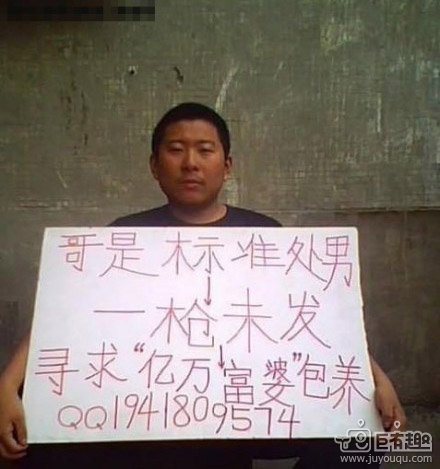 哥是标准处男
一枪未发
寻求“亿万富婆”包养
QQ1941809574
巨有趣
www.juyouqu.com